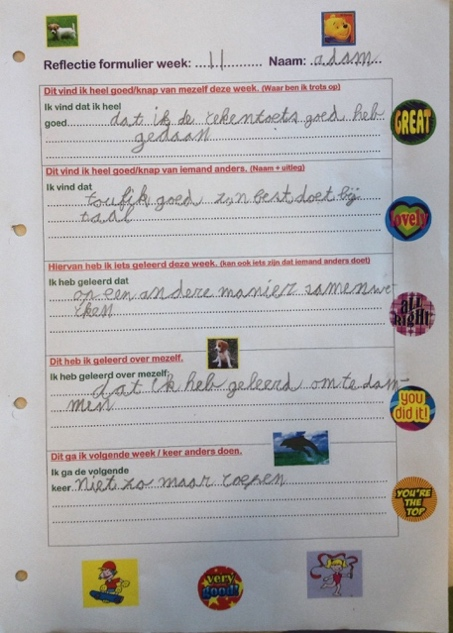 Reflectie formulier week: 11 Naam: adam
Dit vind ik heel goed/knap van mezelf deze week. (Waar ben ik trots op)
Ik vind dat ik heel
goed dat ik de rekentoets goed heb
gedaan
GREAT
Dit vind ik heel goed/knap van iemand anders. (Naam + uitleg)
Ik vind dat
toufik goed zijn best doet bij
taal
lovely
Hiervan heb ik iets geleerd deze week. (kan ook iets zijn dat iemand anders doet)
Ik heb geleerd dat
op een andere manier samenwe-
rken
all
RIGHT
Dit heb ik geleerd over mezelf.
Ik heb geleerd over mezelf:
dat ik heb geleerd om te dam-
men
you
did it!
Dit ga ik volgende week / keer anders doen.
Ik ga de volgende
keer niet zo maar roepen
YOU'RE
THE
TOP
very
good!